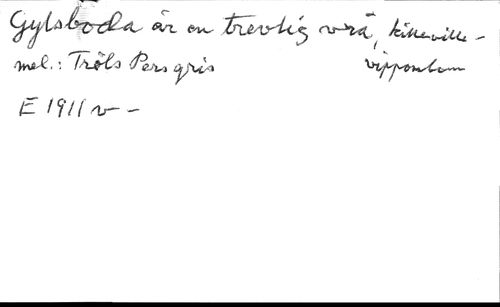 Gylsboda är en trevlig vrå, killeville-
mel.: Tröls Pers gris vippombom
E 1911 v -